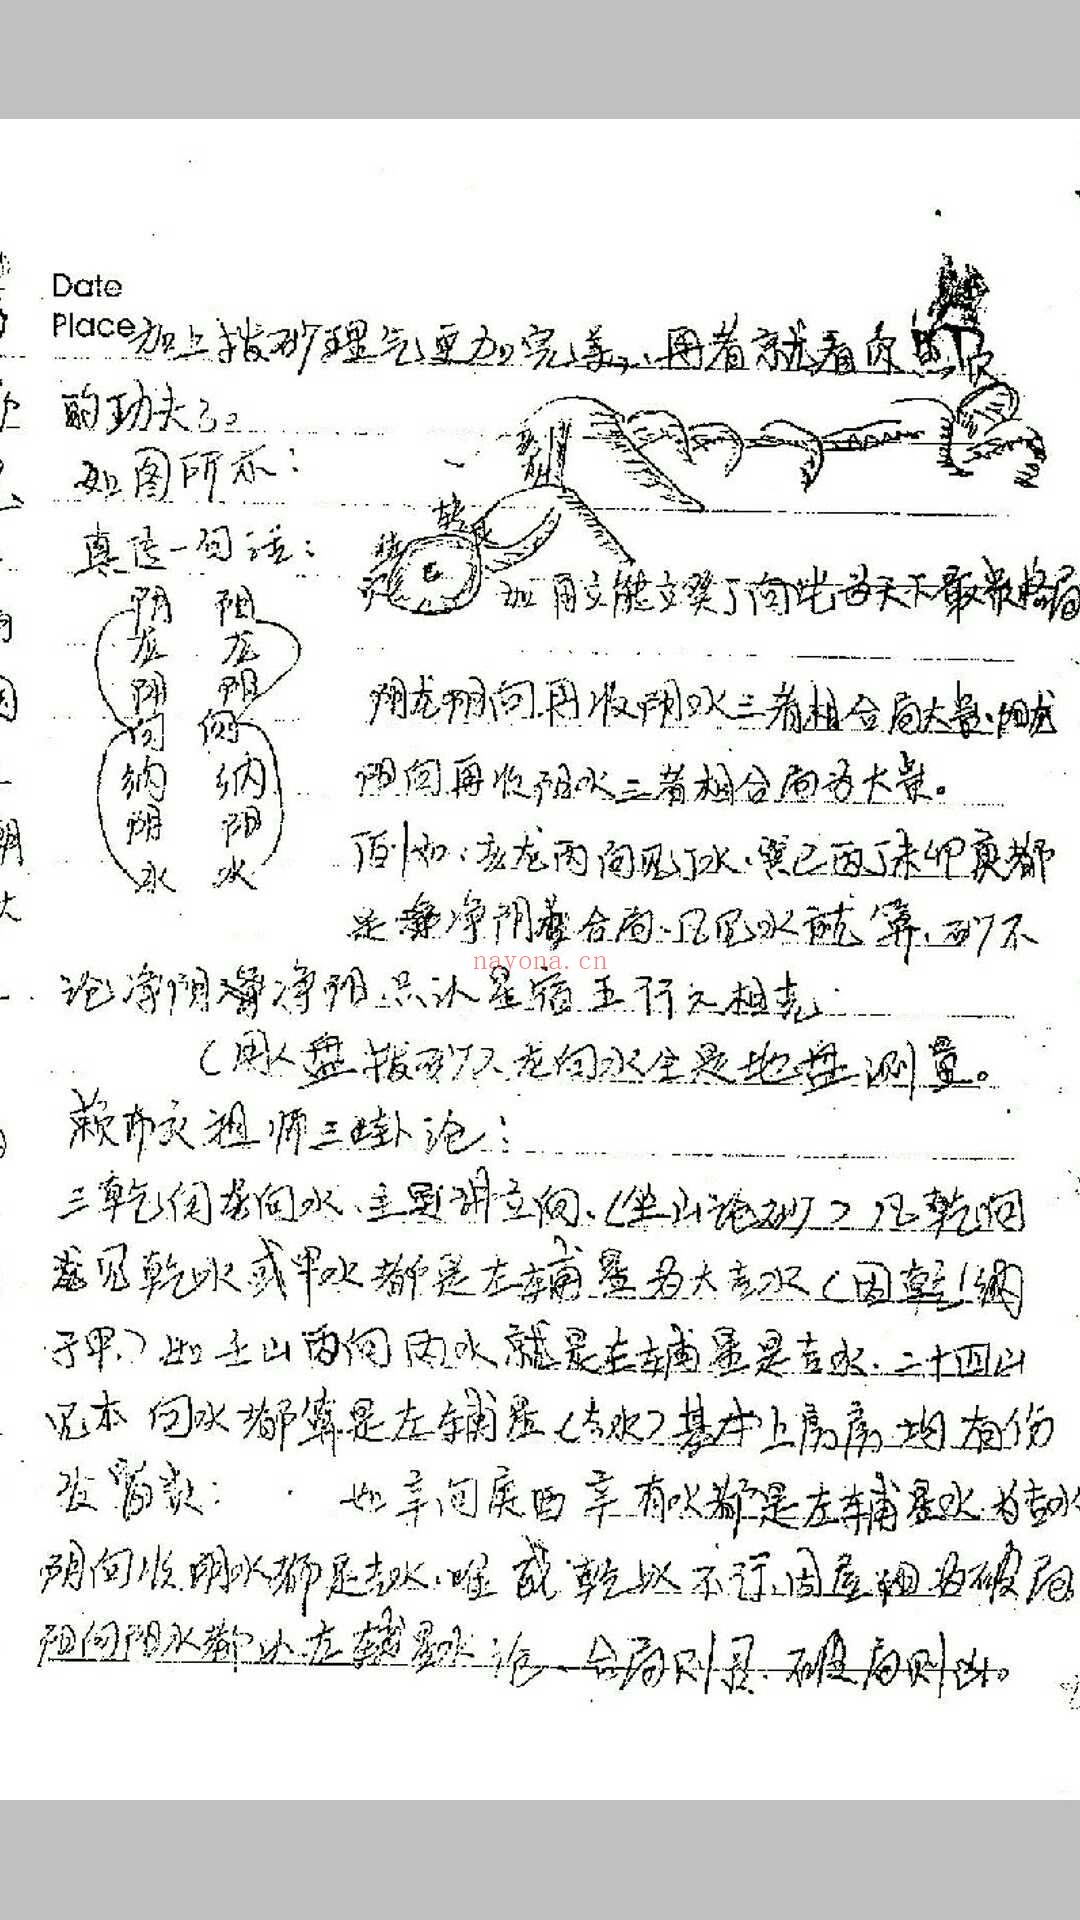 Date
Place 加上拨砂理气更加完美,再者就看你
的功夫了。
如图所示:
真传一句话:
阴龙阴向纳阴水
阳龙阳向纳阳水
加用文能文笔丁向此为天下最贵格局
阴龙阴向再收阴水三者相合局大贵,阳龙
阳向再收阳水三者相合局为大贵。
例如:亥龙丙向见丁水,巽巳丙丁未卯艮都
是净阴合局,凡见水就算,砂不
nayona.cn
论净阴净阳,只认星宿五行之相克
(用人盘拨砂)龙向水全是地盘测量。
赖布衣祖师三卦论:
三乾向龙向水,主题讲立向,(坐山论砂)凡乾向
龙见乾水或甲水都是左辅星为大吉水(因乾纳
于甲)如壬山丙向丙水就是左辅星是吉水,二十四山
见本向水都算是左辅星(吉水)基本上房房均有份
发富贵: 如辛向庚酉辛有水都是左辅星水为吉水
阴向收阴水都是吉水,唯戌乾以不行,因為破局
阳向阳水都以左辅星水论,合局则吉,破局则凶。